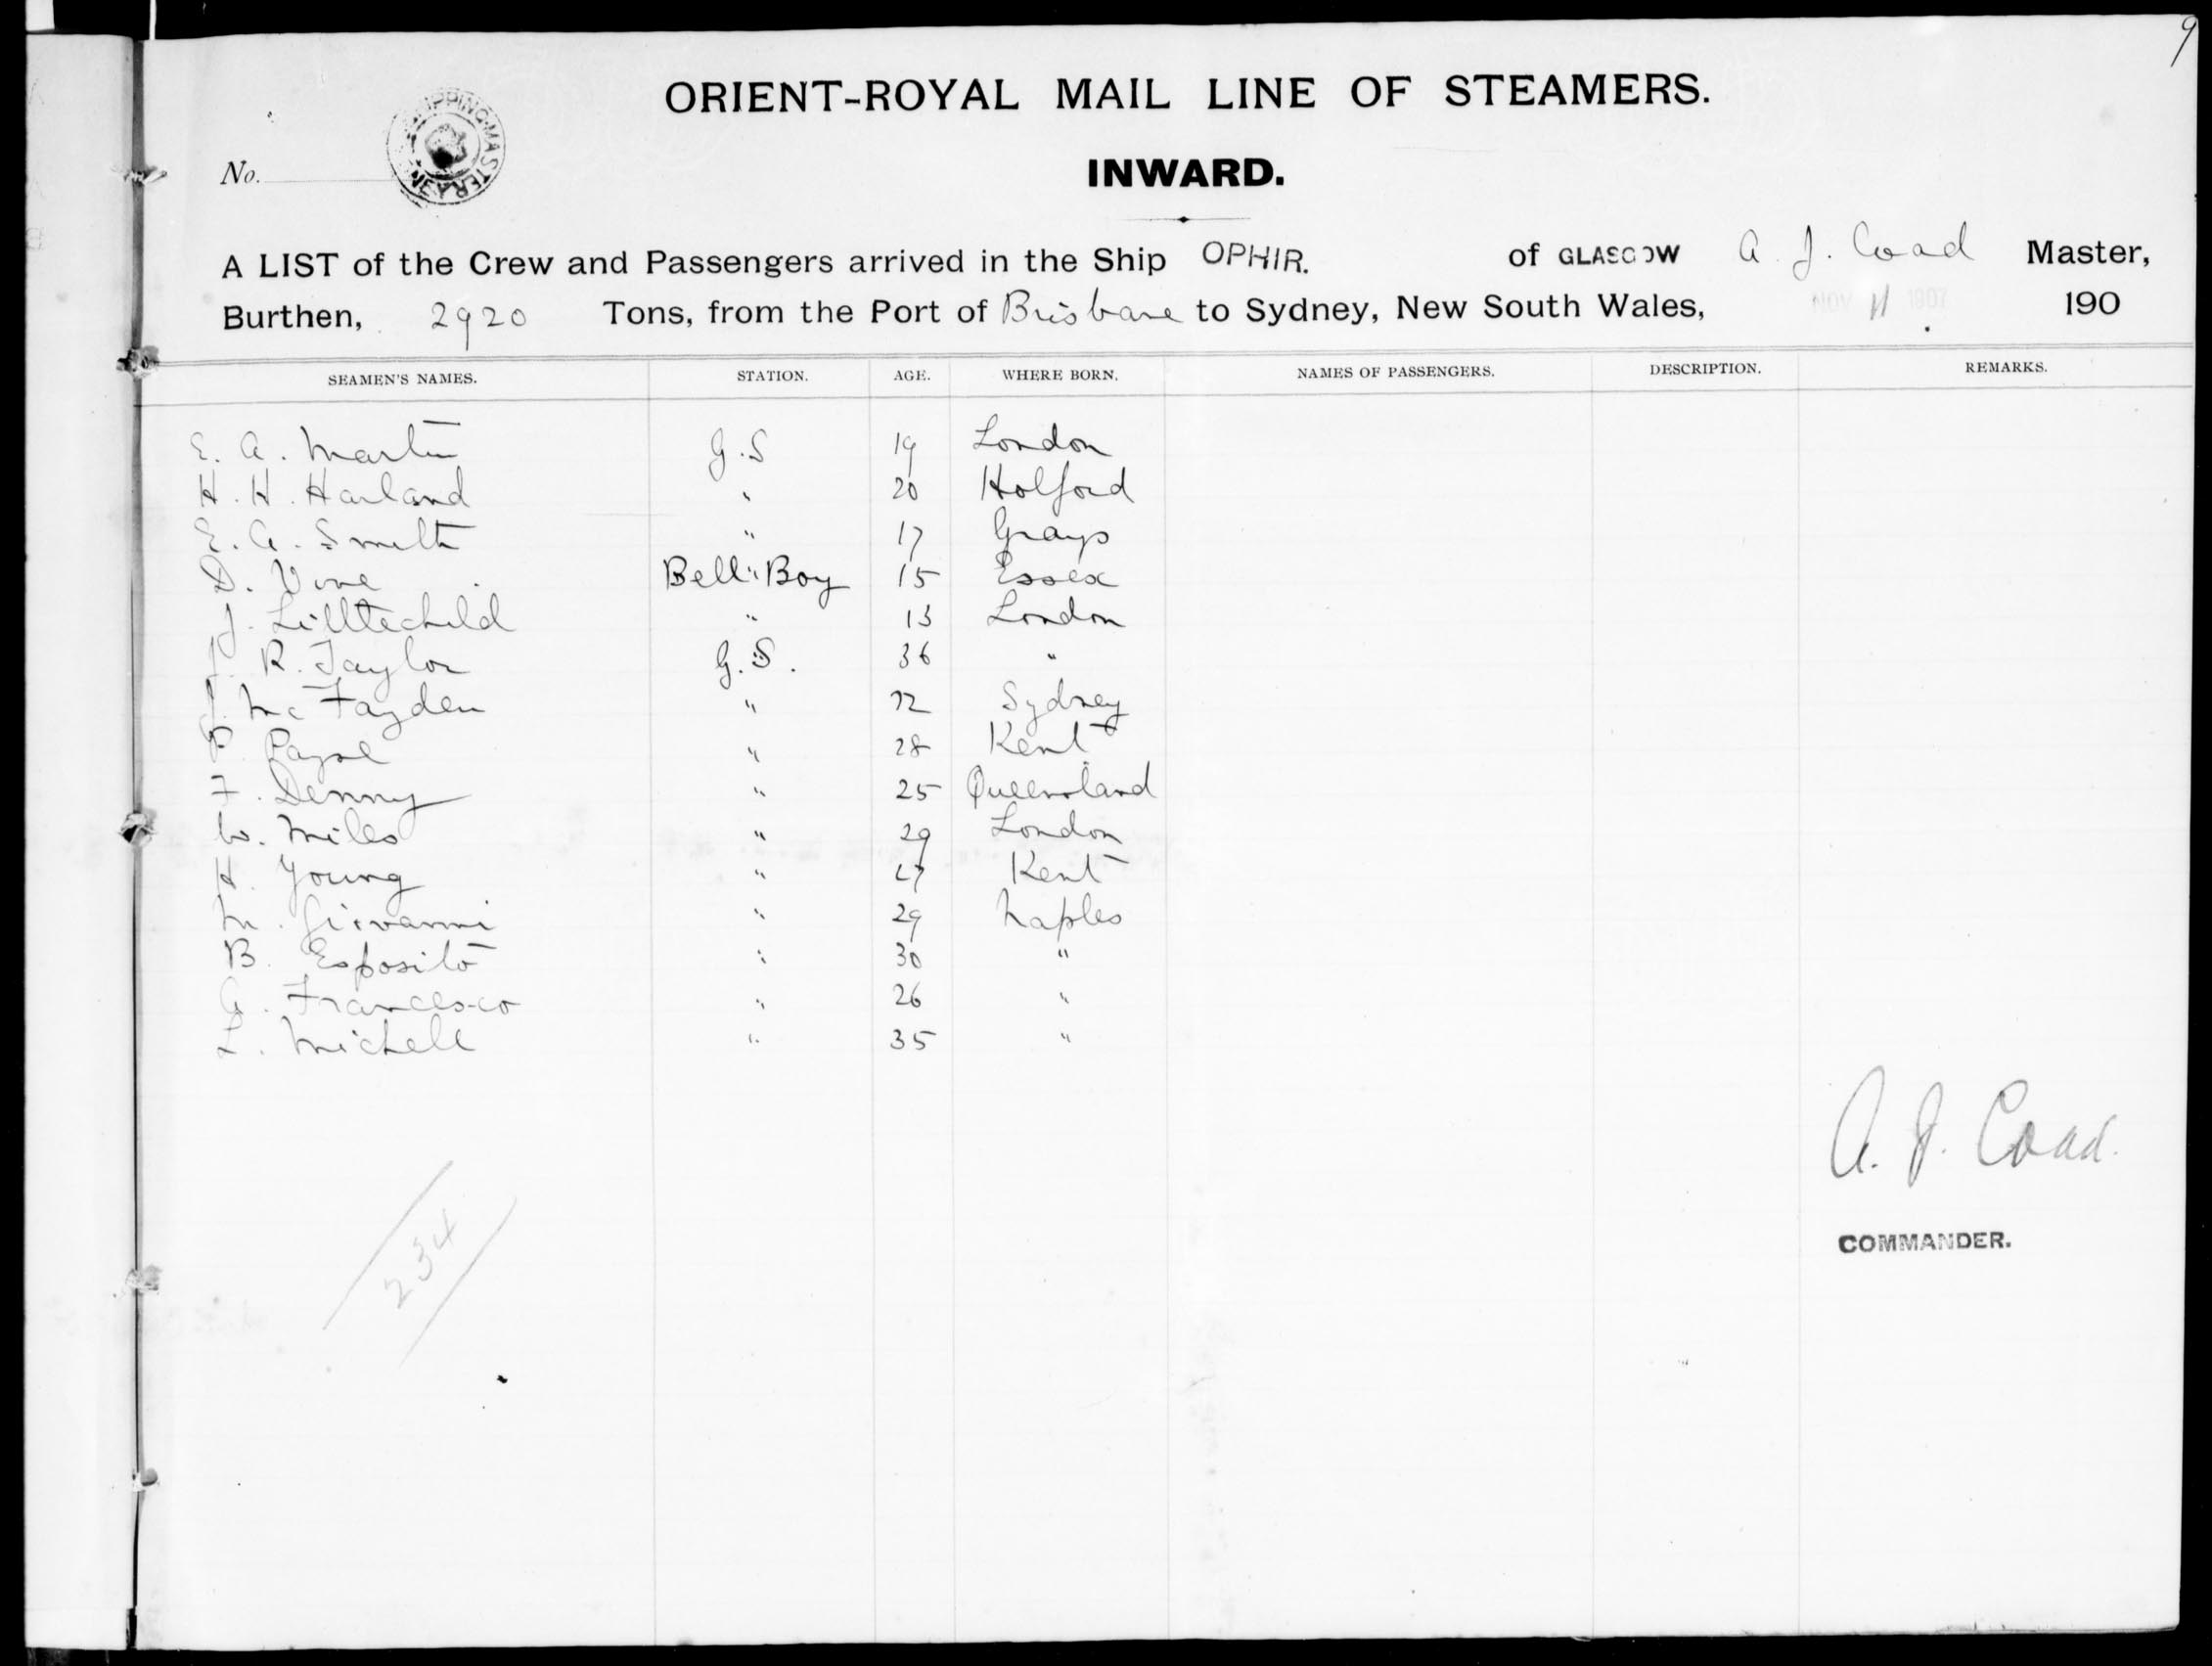 9
ORIENT-ROYAL MAIL LINE OF STEAMERS.
No.
INWARD.
A LIST of the Crew and Passengers arrived in the Ship OPHIR. of GLASGOW A. J. Coad Master,
Burthen, 2920 Tons, from the Port of Brisbane to Sydney, New South Wales, NOV 11 1907 190
SEAMEN'S NAMES. STATION. AGE. WHERE BORN. NAMES OF PASSENGERS. DESCRIPTION. REMARKS.
E. A. Martin G.S 19 London
H. H. Harland " 20 Holford
E. A. Smith " 17 Grays
D. Vine Bell Boy 15 Essex
J. Littlechild " 15 London
J. R. Taylor G.S. 36 "
J. McFayden " 22 Sydney
P. Payne " 28 Kent
F. Denny " 25 Queensland
W. Miles " 29 London
H. Young " 27 Kent
M. Giovanni " 29 Naples
B. Esposito " 30 "
G. Francesco " 26 "
L. Michell " 35 "
A. J. Coad.
COMMANDER.
234